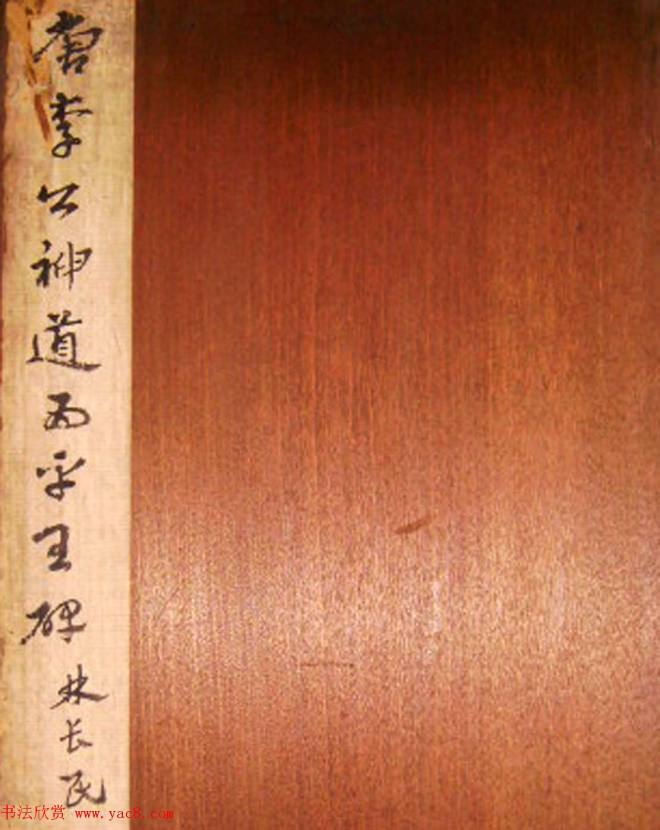 唐李公神道西平王碑
林长民
书法欣赏 www.yac8.com